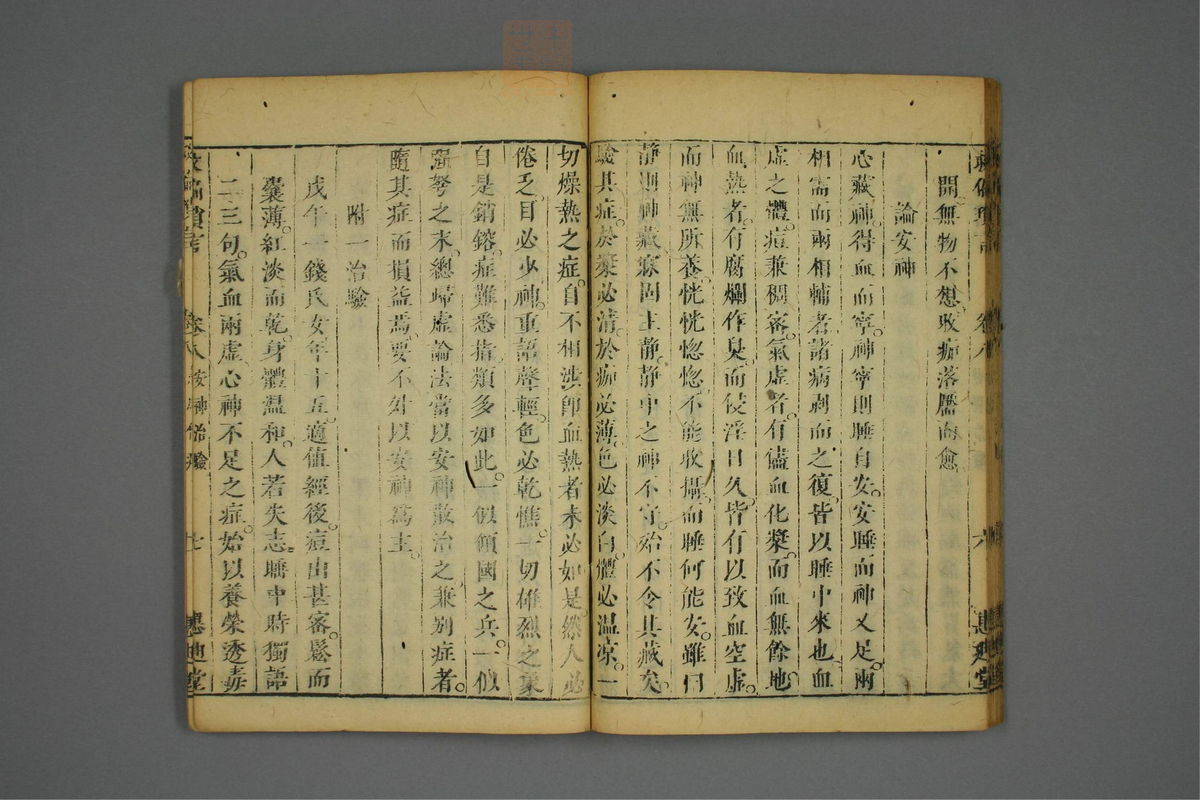 開無物不想收痂落靨而愈
論安神
心藏神得血而寧神寧則睡自安安睡而神又足兩
相需而兩相輔者諸病剥而之復皆以睡中來也血
虛之體痘兼稠密氣虛者有儘血化漿而血無餘地
血熱者有腐爛作臭而使淫日久皆有以致血空虛
而神無所養恍恍惚惚不能收攝而睡何能安雖曰
靜則神藏寐固主靜靜中之神不守始不令其藏矣
驗其症於漿必清於痂必薄色必淡白體必温凉一
切燥熱之症自不相涉卽血熱者未必如是然人必
倦乏目必少神重語聲輕色必乾憔一切雄烈之氣
自是銷鎔症難悉指類多如此一似傾國之兵一似
强弩之末總歸虛論法當以安神散治之兼別症者
隨其症而損益焉要不外以安神爲主
附一治驗
戊午一錢氏女年十五適值經後痘出甚密鬆而
囊薄紅淡而乾身體温和人若失志睡中時獨語
二三句氣血兩虛心神不足之症始以養榮透毒
卷八 安神治驗 七 惠迪堂